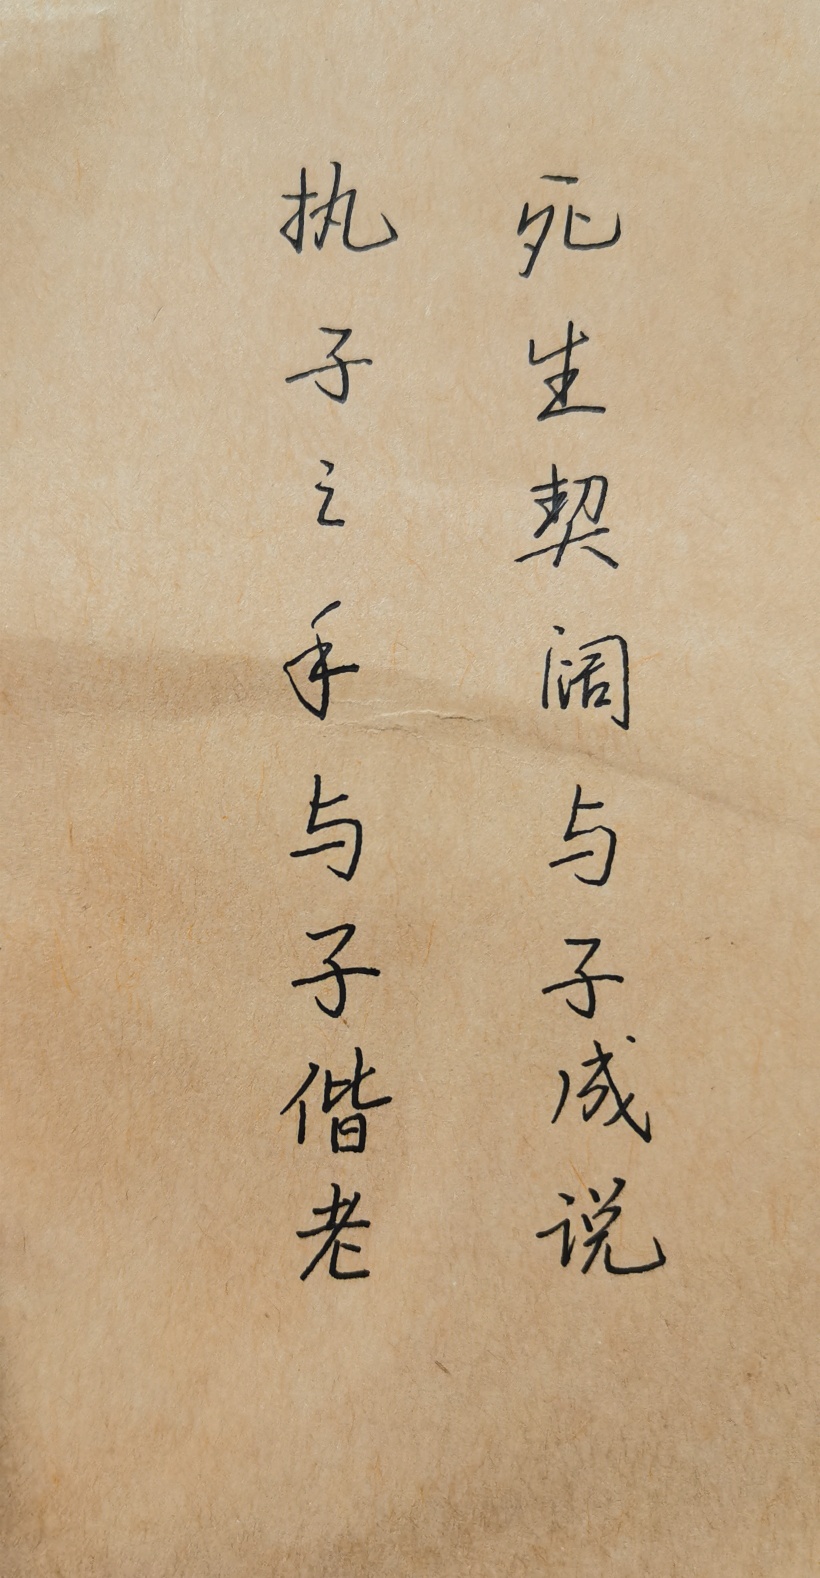 死生契阔与子成说
执子之手与子偕老